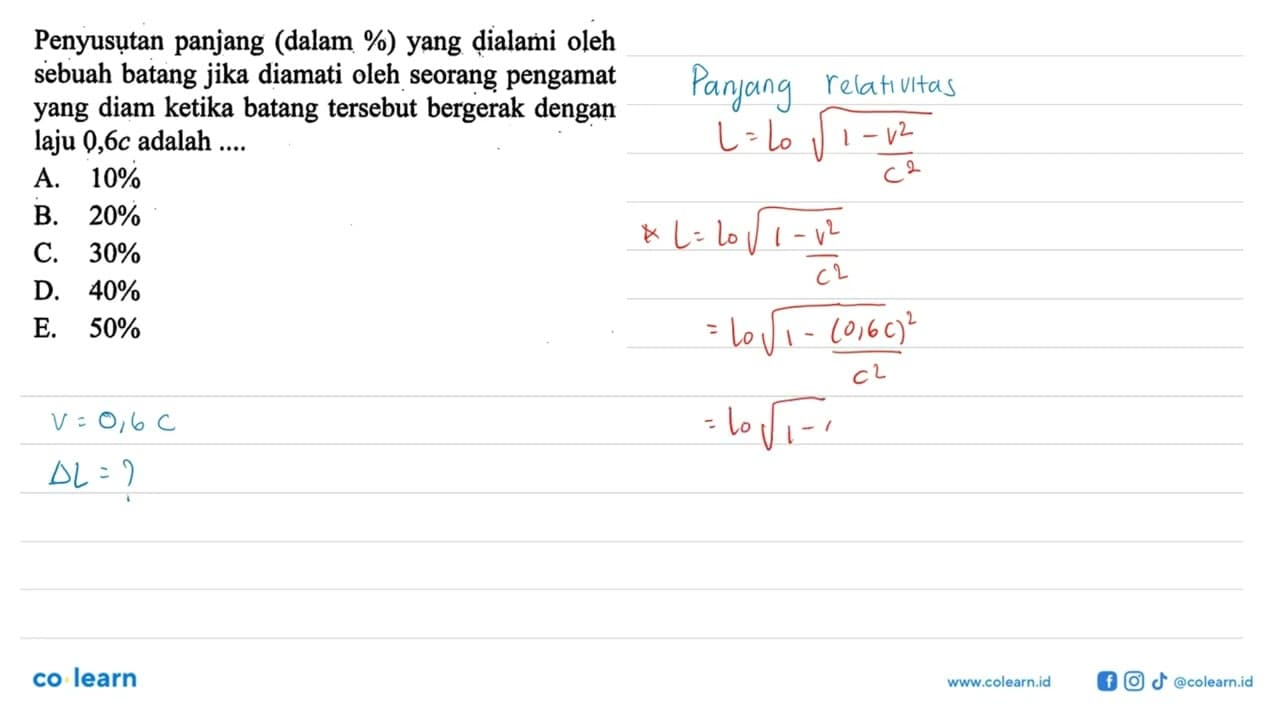 Penyusutan panjang (dalam %) yang dialami oleh
sebuah batang jika diamati oleh seorang pengamat
yang diam ketika batang tersebut bergerak dengan
laju 0,6c adalah ....
A. 10%
B. 20%
C. 30%
D. 40%
E. 50%
V = 0,6 C
ΔL = ?
Panjang relativitas
L = Lo √(1 - v²/c²)
* L = Lo √(1 - v²/c²)
= Lo √(1 - (0,6 c)²/c²)
= Lo √(1 -
co learn
www.colearn.id
@colearn.id